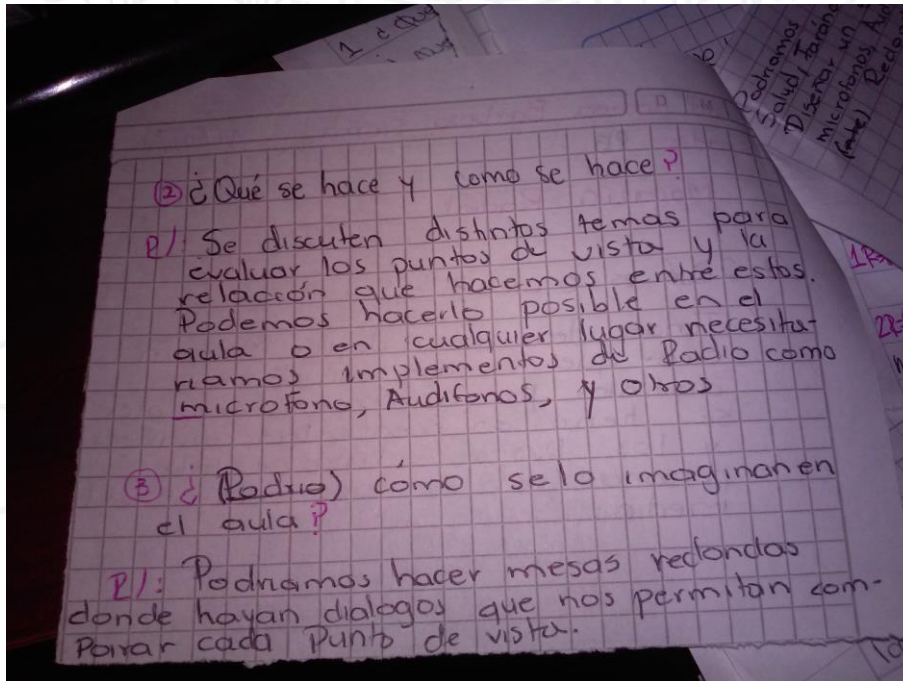 ② ¿Qué se hace y como se hace?
R/: Se discuten distintos temas para
evaluar los puntos de vista y la
relación que hacemos entre estos.
Podemos hacerlo posible en el
aula o en cualquier lugar necesita-
riamos implementos de Radio como
microfono, Audifonos, y otros
③ ¿(Radio) cómo selo imaginan en
el aula?
R/: Podriamos hacer mesas redondas
donde hayan dialogos que nos permitan com-
parar cada Punto de vista.
1 ¿Que
Podriamos
Salud, Farand
Diseñar un
microfonos, Au
Redon
1R
2R